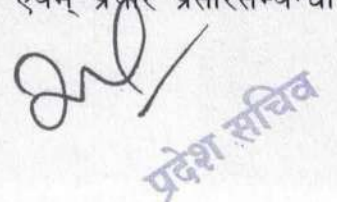 एवम् प्रचार प्रसारसम्बन्धी
प्रदेश सचिव